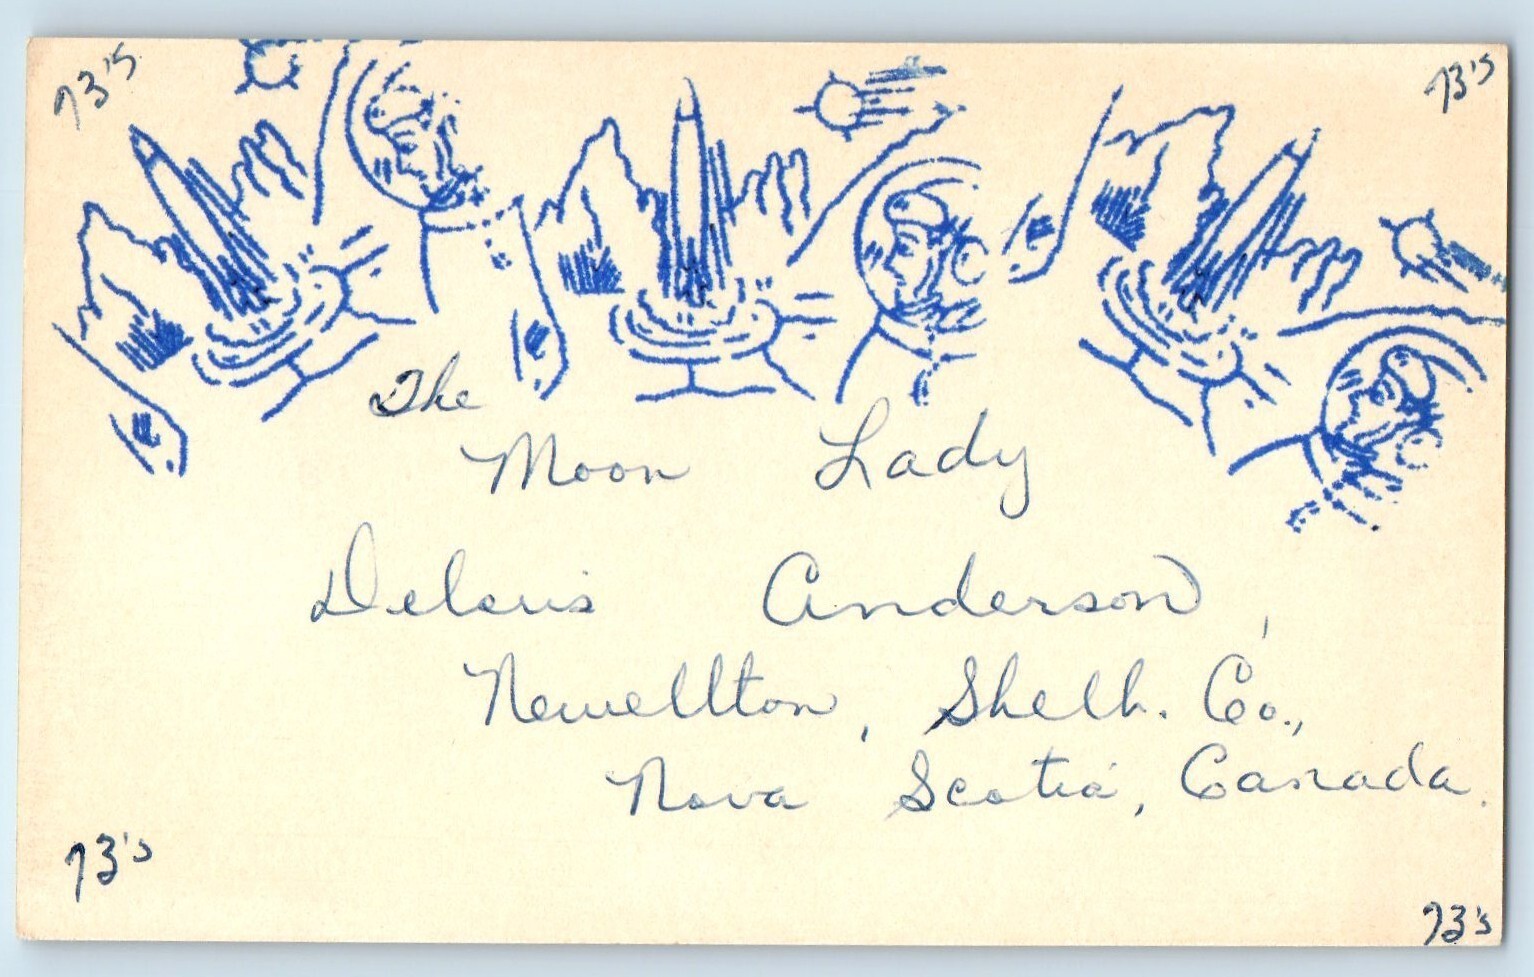 73's 73's
The
Moon Lady
Deloris Anderson,
Newellton, Shelb. Co.,
Nova Scotia, Canada.
73's
73's